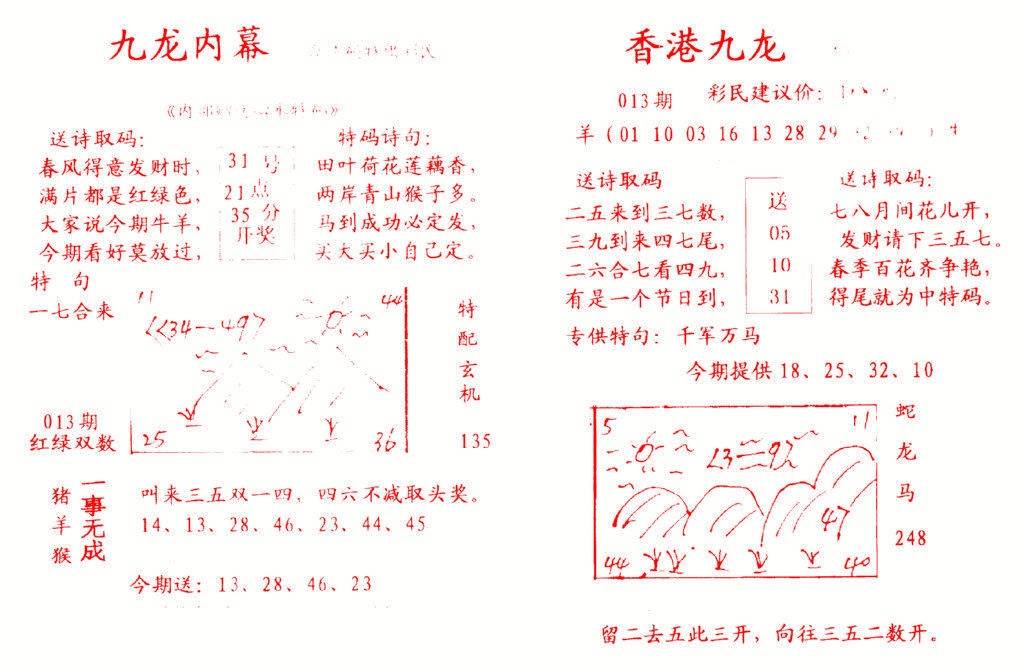 九龙内幕
送诗取码：
春风得意发财时，
满片都是红绿色，
大家说今期牛羊，
今期看好莫放过，
31号
21点
35分
开奖
特码诗句：
田叶荷花莲藕香，
两岸青山猴子多。
马到成功必定发，
买大买小自己定。
特句
一七合来
013期
红绿双数
11
44
34 49
25
36
特配玄机
135
猪羊猴
一事无成
叫来三五双一四，四六不减取头奖。
14、13、28、46、23、44、45
今期送：13、28、46、23
香港九龙
013期
彩民建议价：
羊（01 10 03 16 13 28 29
送诗取码
二五来到三七数，
三九到来四七尾，
二六合七看四九，
有是一个节日到，
送
05
10
31
送诗取码：
七八月间花儿开，
发财请下三五七。
春季百花齐争艳，
得尾就为中特码。
专供特句：千军万马
今期提供18、25、32、10
5
11
47
44
40
蛇
龙
马
248
留二去五此三开，向往三五二数开。